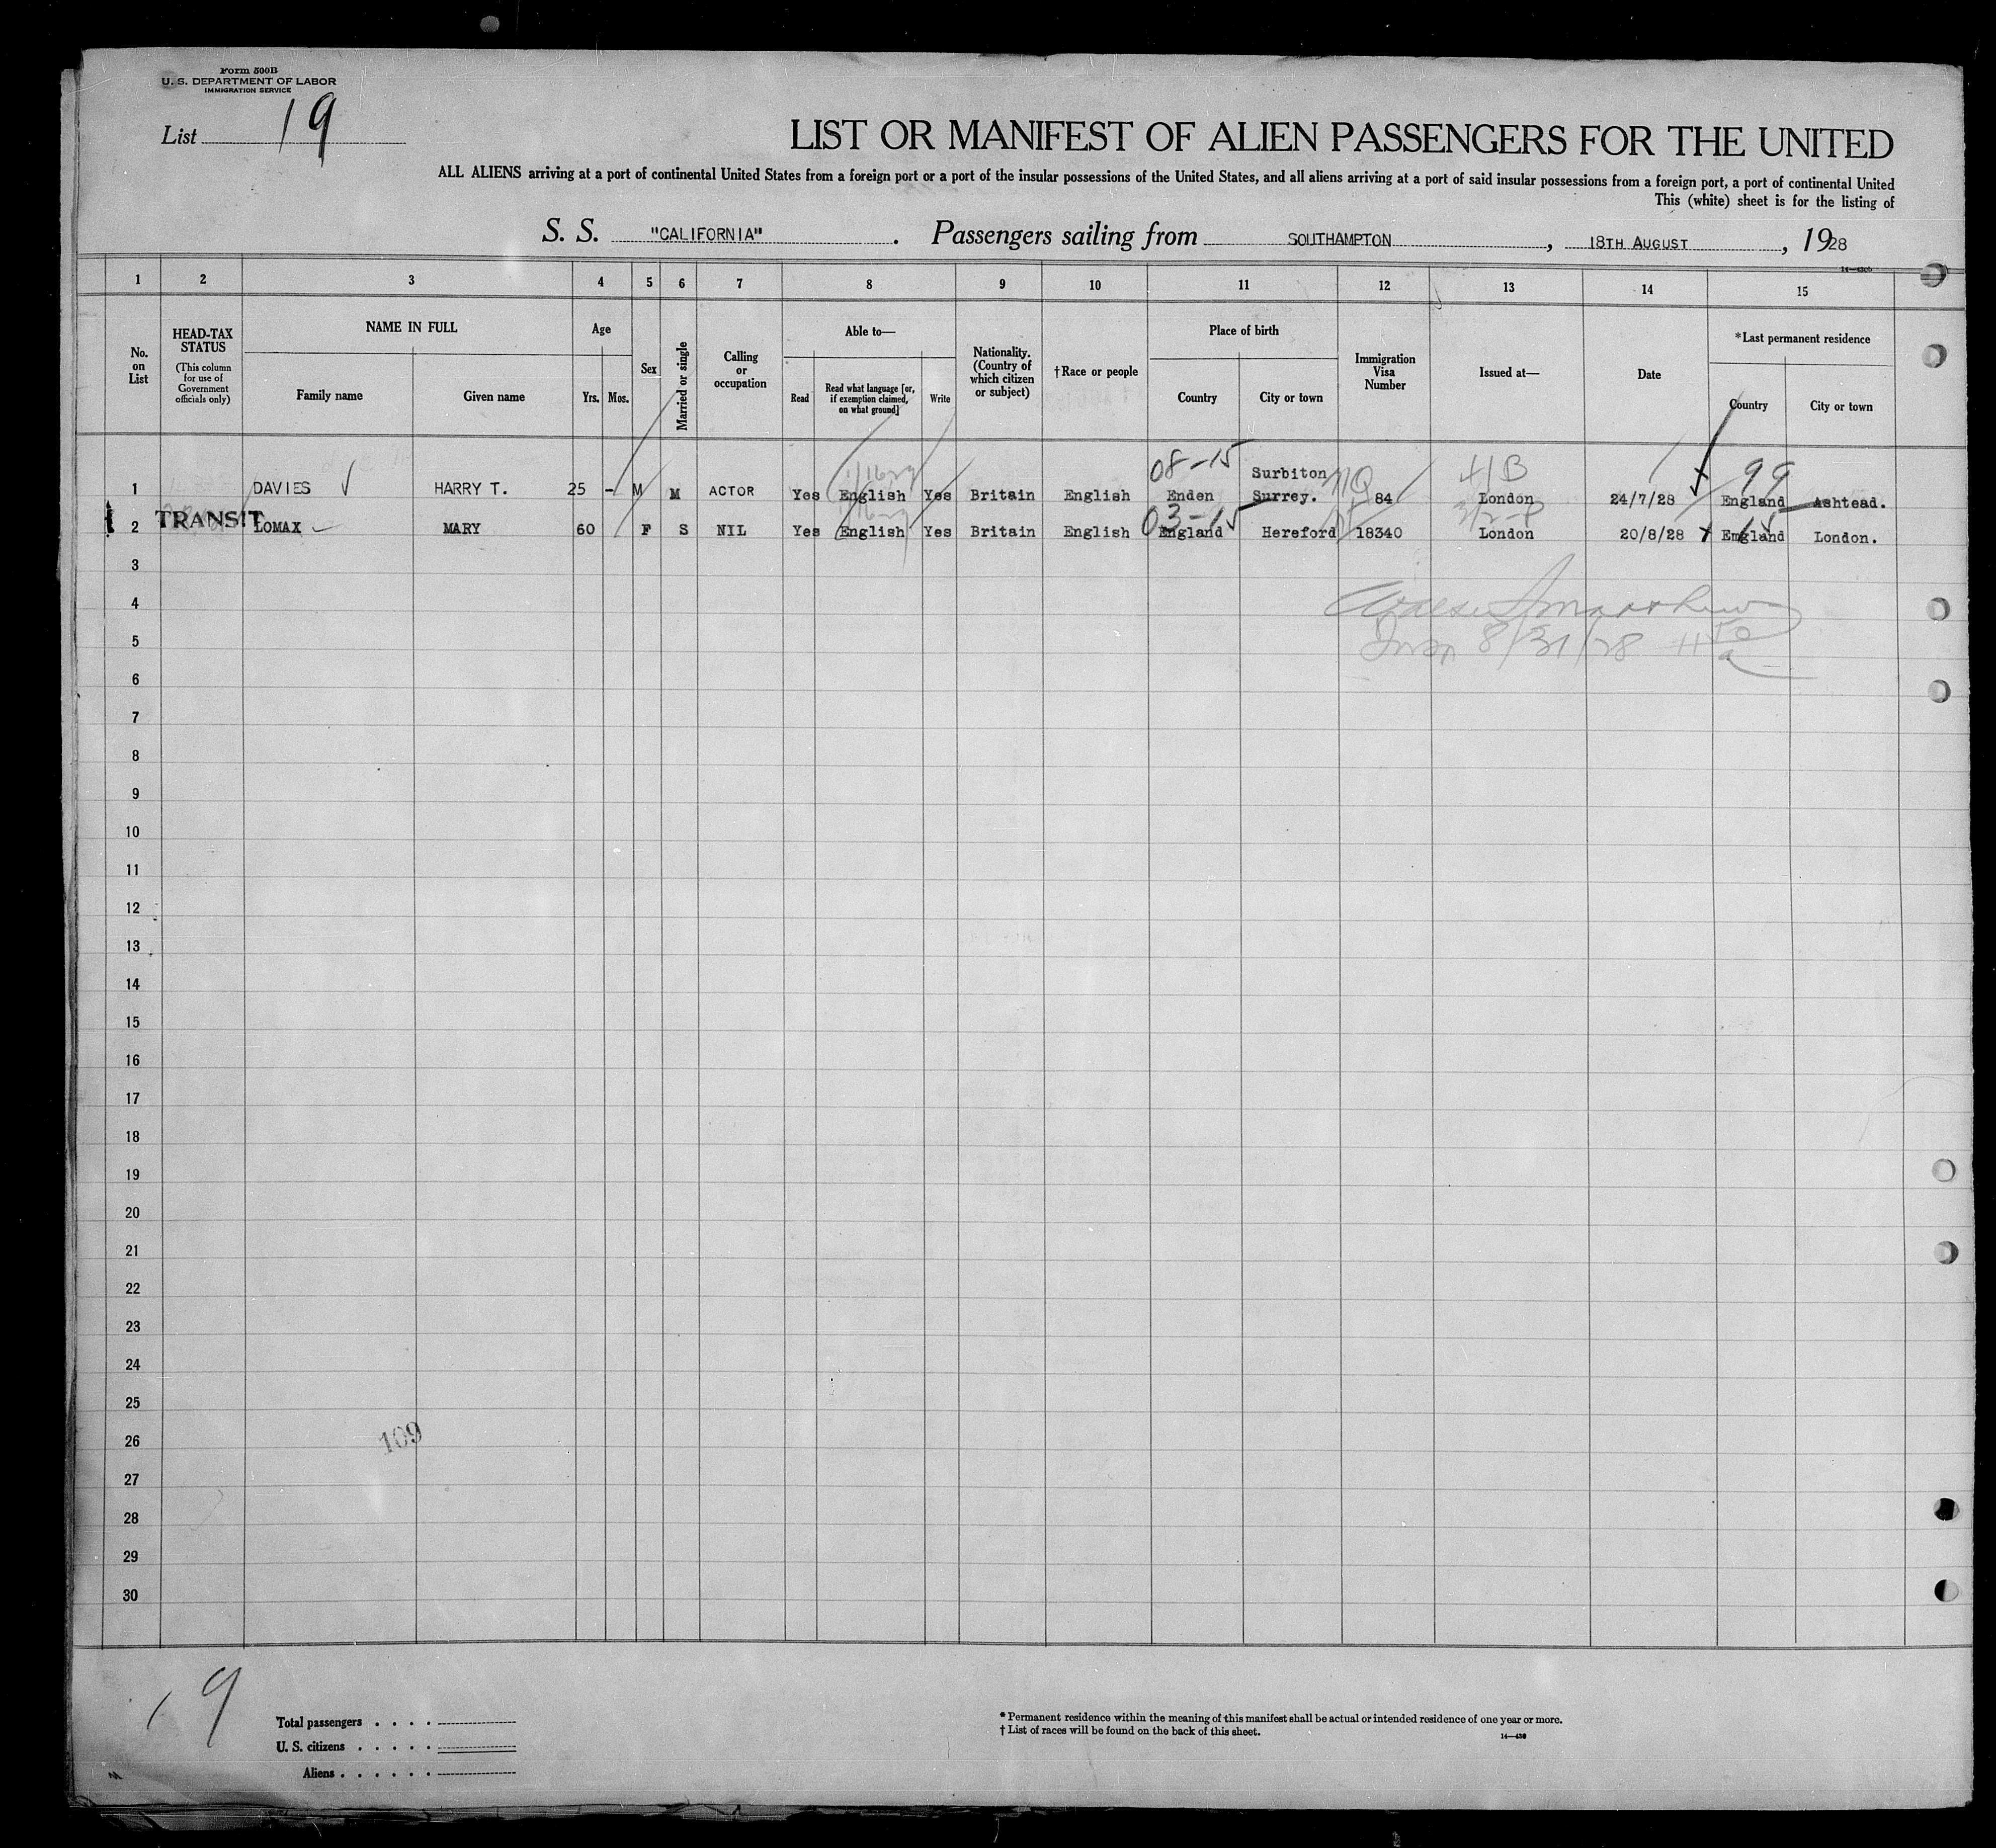 Form 500B
U. S. DEPARTMENT OF LABOR
IMMIGRATION SERVICE
List 19
LIST OR MANIFEST OF ALIEN PASSENGERS FOR THE UNITED
ALL ALIENS arriving at a port of continental United States from a foreign port or a port of the insular possessions of the United States, and all aliens arriving at a port of said insular possessions from a foreign port, a port of continental United
This (white) sheet is for the listing of
S. S. "CALIFORNIA" . Passengers sailing from SOUTHAMPTON , 18TH AUGUST , 1928
1 2 3 4 5 6 7 8 9 10 11 12 13 14 15
No. on List
HEAD-TAX STATUS
(This column for use of Government officials only)
NAME IN FULL
Family name
Given name
Age
Yrs. Mos.
Sex
Married or single
Calling or occupation
Able to—
Read
Read what language [or, if exemption claimed, on what ground]
Write
Nationality. (Country of which citizen or subject)
†Race or people
Place of birth
Country
City or town
Immigration Visa Number
Issued at—
Date
*Last permanent residence
Country
City or town
08-15 99
1 DAVIES HARRY T. 25 - M M ACTOR Yes English Yes Britain English Enden Surbiton Surrey. 84 London 24/7/28 England Ashtead.
03-15
2 TRANSIT LOMAX MARY 60 F S NIL Yes English Yes Britain English England Hereford 18340 London 20/8/28 England London.
3
4
5 8/31/28
6
7
8
9
10
11
12
13
14
15
16
17
18
19
20
21
22
23
24
25
26
109
27
28
29
30
19
Total passengers . . . .
U. S. citizens . . . . .
Aliens . . . . . .
* Permanent residence within the meaning of this manifest shall be actual or intended residence of one year or more.
† List of races will be found on the back of this sheet.
14—430